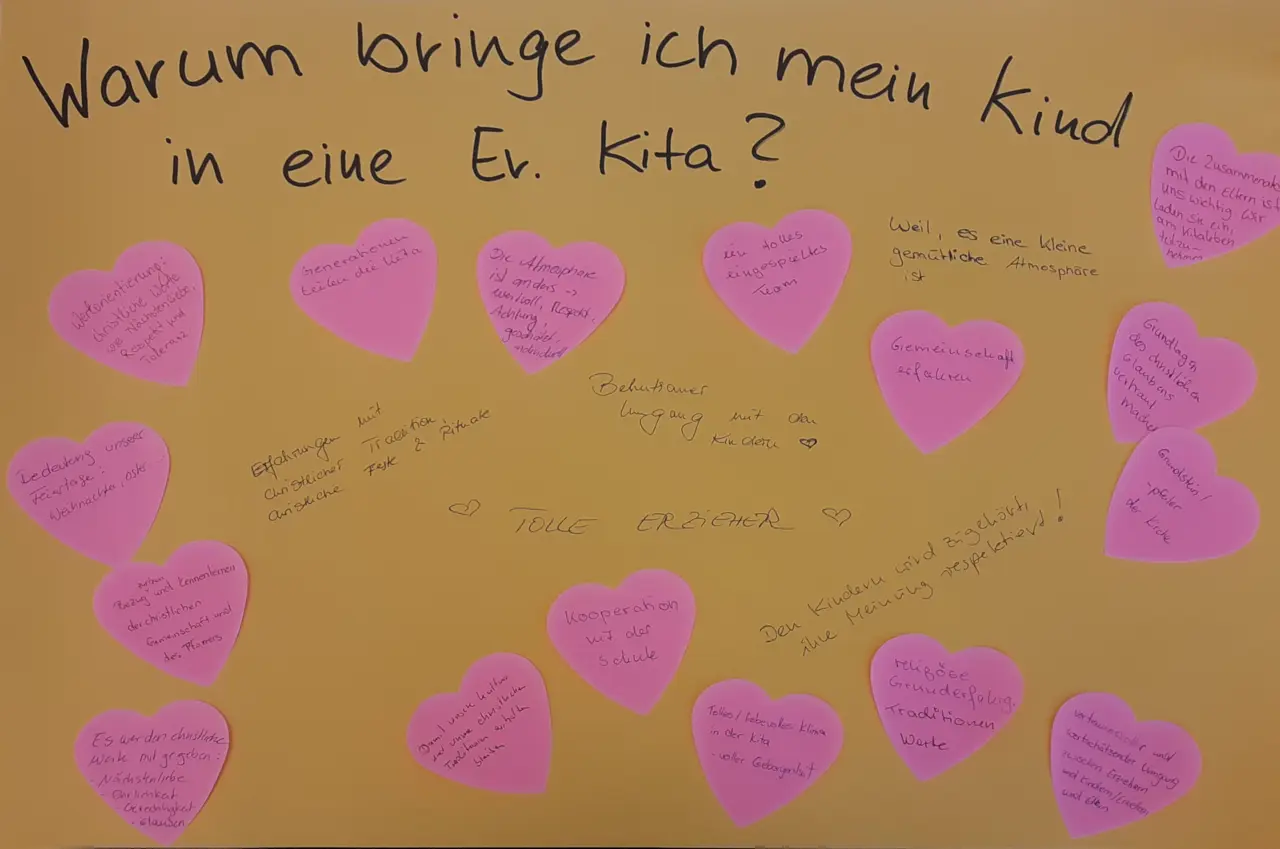 Warum bringe ich mein Kind
in eine Ev. Kita?
Die Zusammenarb
mit den Eltern ist
uns wichtig Wir
laden sie ein,
am Kitaleben
teilzu-
nehmen
Weil, es eine kleine
gemütliche Atmosphäre
ist
ein tolles
eingespieltes
Team
Die Atmosphäre
ist anders →
wertvoll, Respekt,
Achtung,
geschätzt,
Generationen
teilen die Kita
Wertorientierung:
christliche Werte
wie Nächstenliebe,
Respekt und
Toleranz
Gemeinschaft
erfahren
Grundlagen
des christlichen
Glaubens
vertraut
machen
Behutsamer
Umgang mit den
Kindern ♡
Erfahrungen mit
christlicher Tradition,
christliche Feste & Rituale
Bedeutung unserer
Feiertage:
Weihnachten, Oster
Grundstein/
-pfeiler
der Kirche
♡ TOLLE ERZIEHER ♡
Den Kindern wird zugehört,
ihre Meinung respektiert!
zur
Bezug und Kennenlernen
der christlichen
Gemeinschaft und
des Pfarrers
Kooperation
mit der
Schule
Damit unsere Kultur
und unsere christlichen
Traditionen erhalten
bleiben
Tolles/liebevolles Klima
in der Kita
- voller Geborgenheit
religiöse
Grunderfahrg.
Traditionen
Werte
vertrauensvoller und
wertschätzender Umgang
zwischen Erziehern
und Kindern/Erziehern
und Eltern
Es werden christliche
Werte mit gegeben:
- Nächstenliebe
- Ehrlichkeit
- Gerechtigkeit
- Glauben